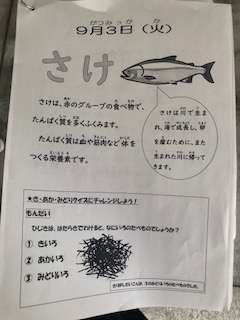 9月3日（火）
さけ
さけは、赤のグループの食べ物で、
たんぱく質を多くふくみます。
たんぱく質は血や筋肉など 体を
つくる栄養素です。
さけは川で生ま
れ、海で成長し、卵
を産むために、また
生まれた川に帰って
きます。
★き・あか・みどりクイズにチャレンジしよう！
もんだい
ひじきは、はたらきでわけると、なにいろのたべものでしょうか？
① きいろ
② あかいろ
③ みどりいろ